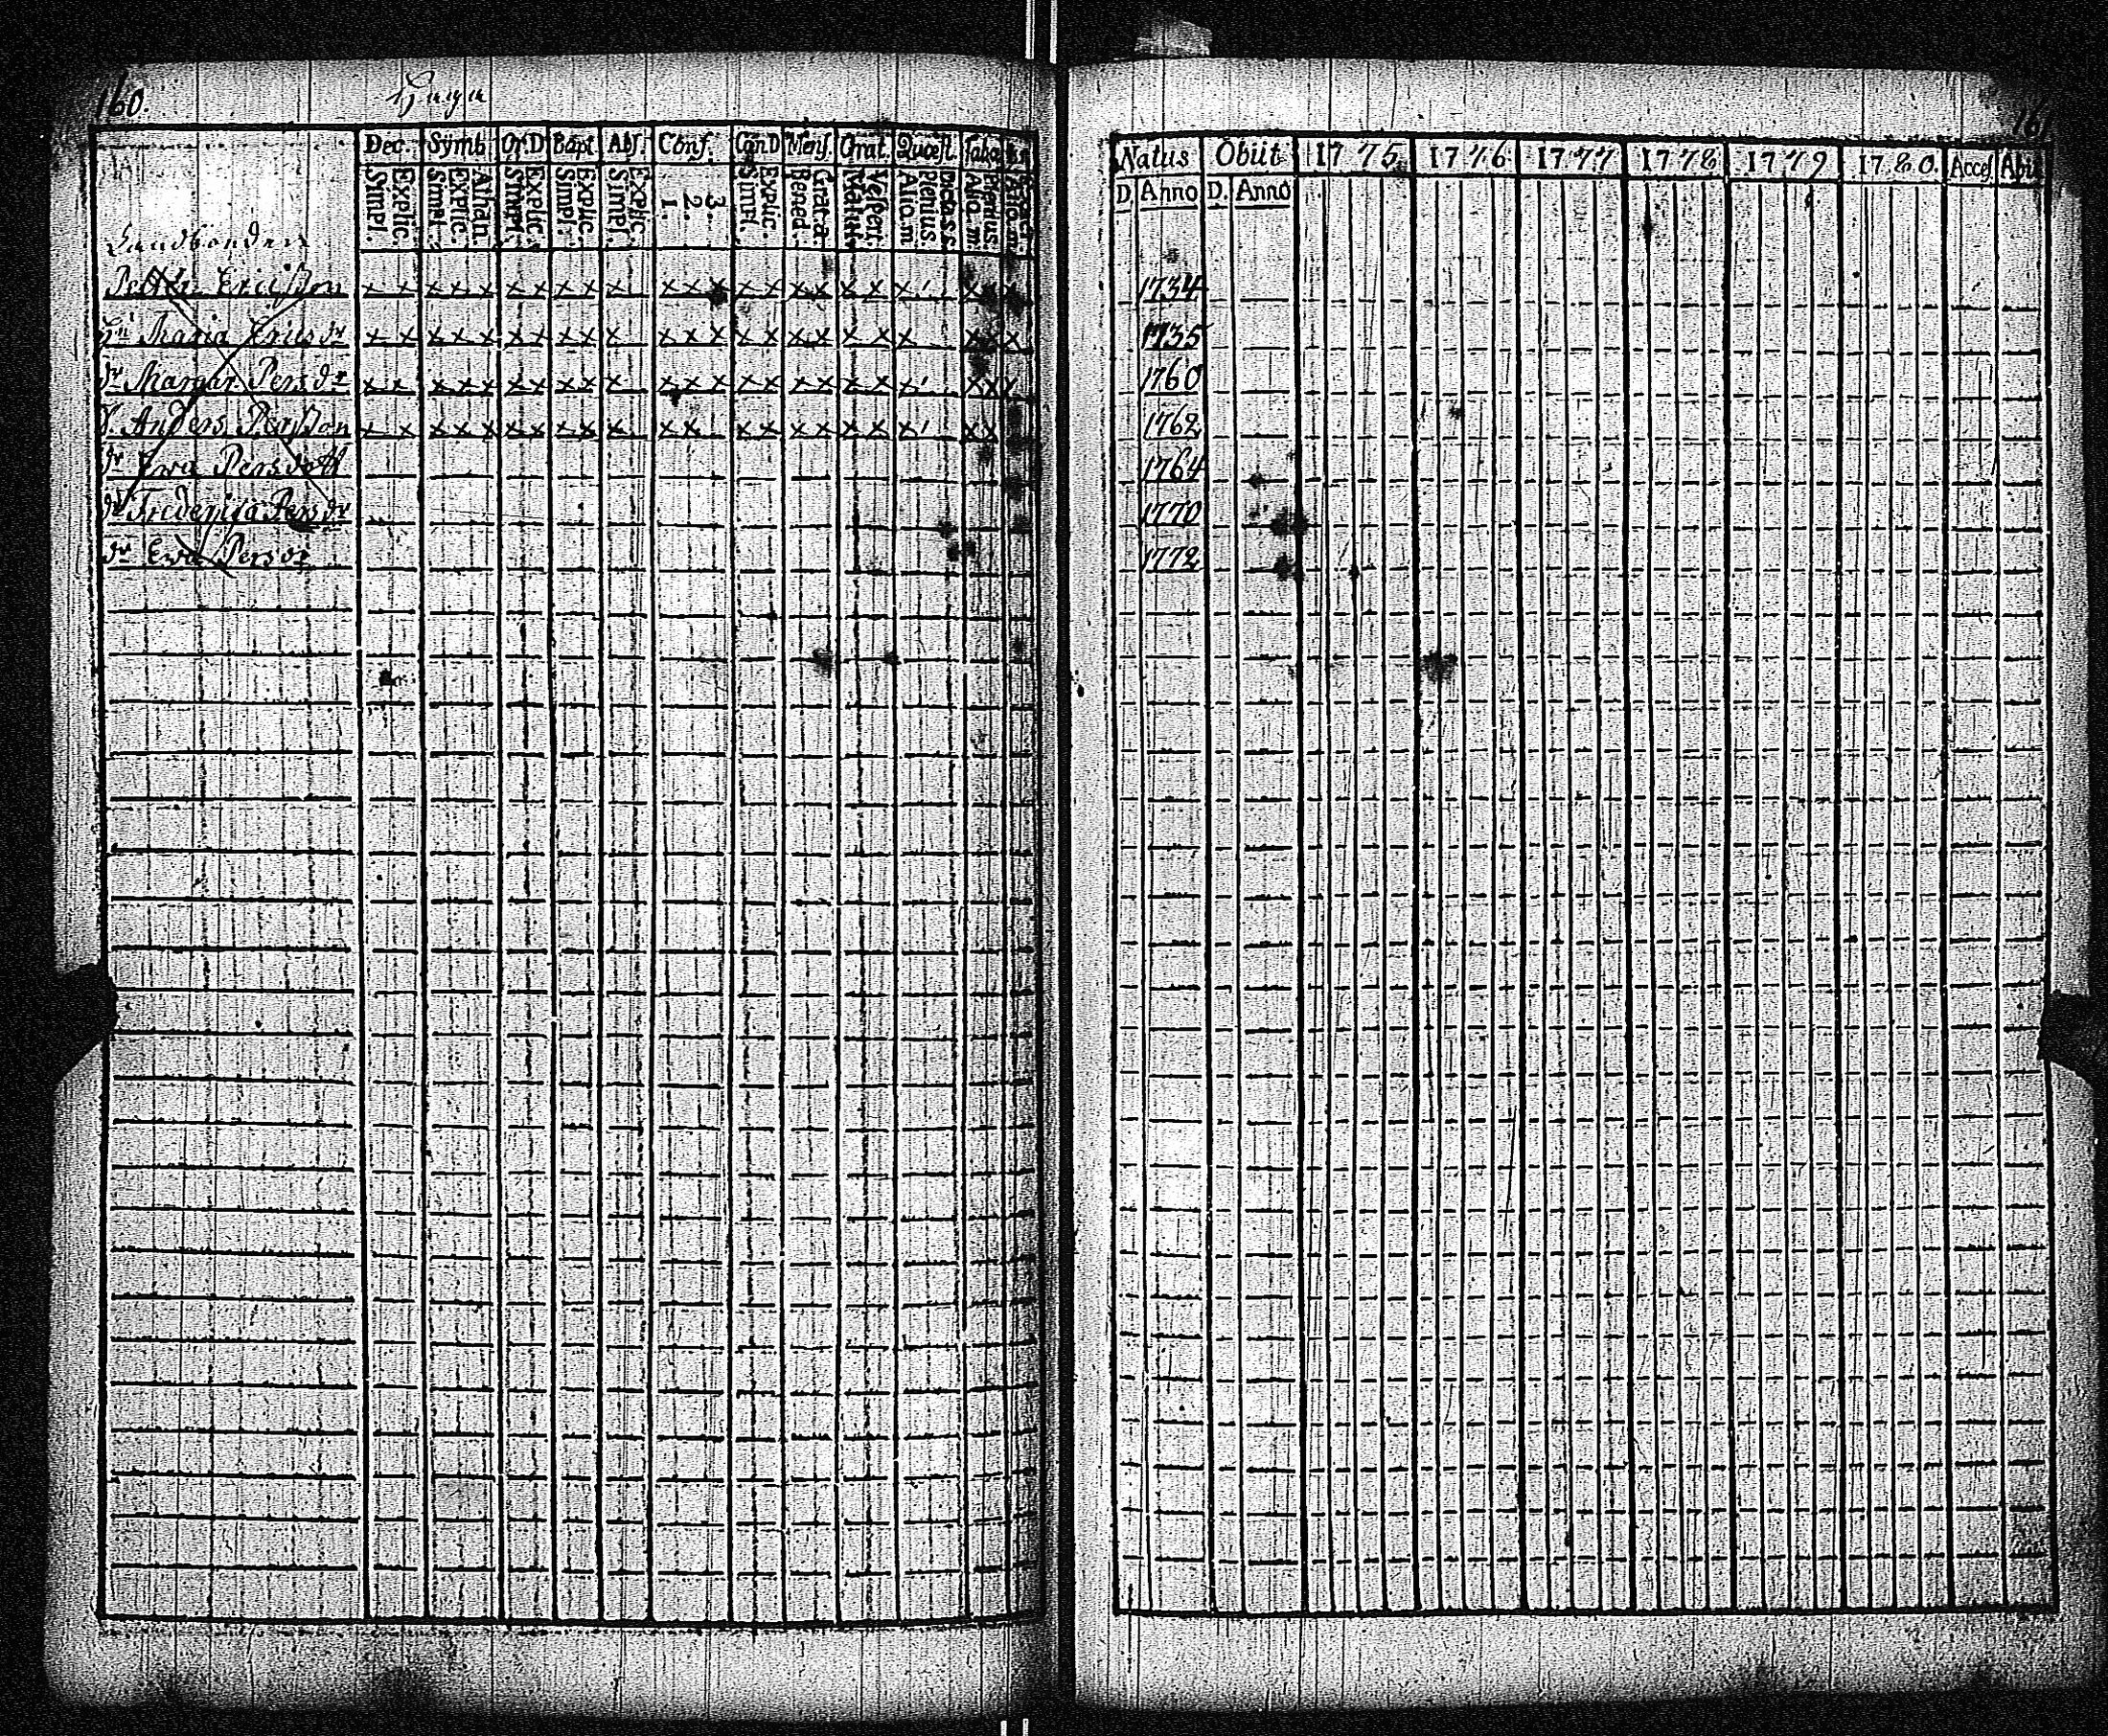 160.
Dec. Symb. Or.D. Bapt. Abs. Conf. Can D Mens. Orat. Quæst. Taba
Simpl. Explic. Simpl. Explic. Athan. Simpl. Explic. Simpl. Explic. Simpl. Explic. 1. 2. 3. Simpl. Explic. Bened. Grat. a. Matut. Vesper. Alio. m plenius. Dicta s.s. Alio. m. Plenius.
Petter Ericsson x x x x x x x x x x x x x x x x x x x x
Maria Ericsdr x x x x x x x x x x x x x x x x x x x x x x
dr Margar. Persdr x x x x x x x x x x x x x x x x x x x x x x
S. Anders Persson x x x x x x x x x x x x x x x x x x x x
dr Ewa Persdott
dr Fredericja Persdr
dr Ewa Persdr
161
Natus Obiit 1775. 1776 1777 1778 1779 1780. Acces. Abit
D Anno D. Anno
1734
1735
1760
1762
1764
1770
1772